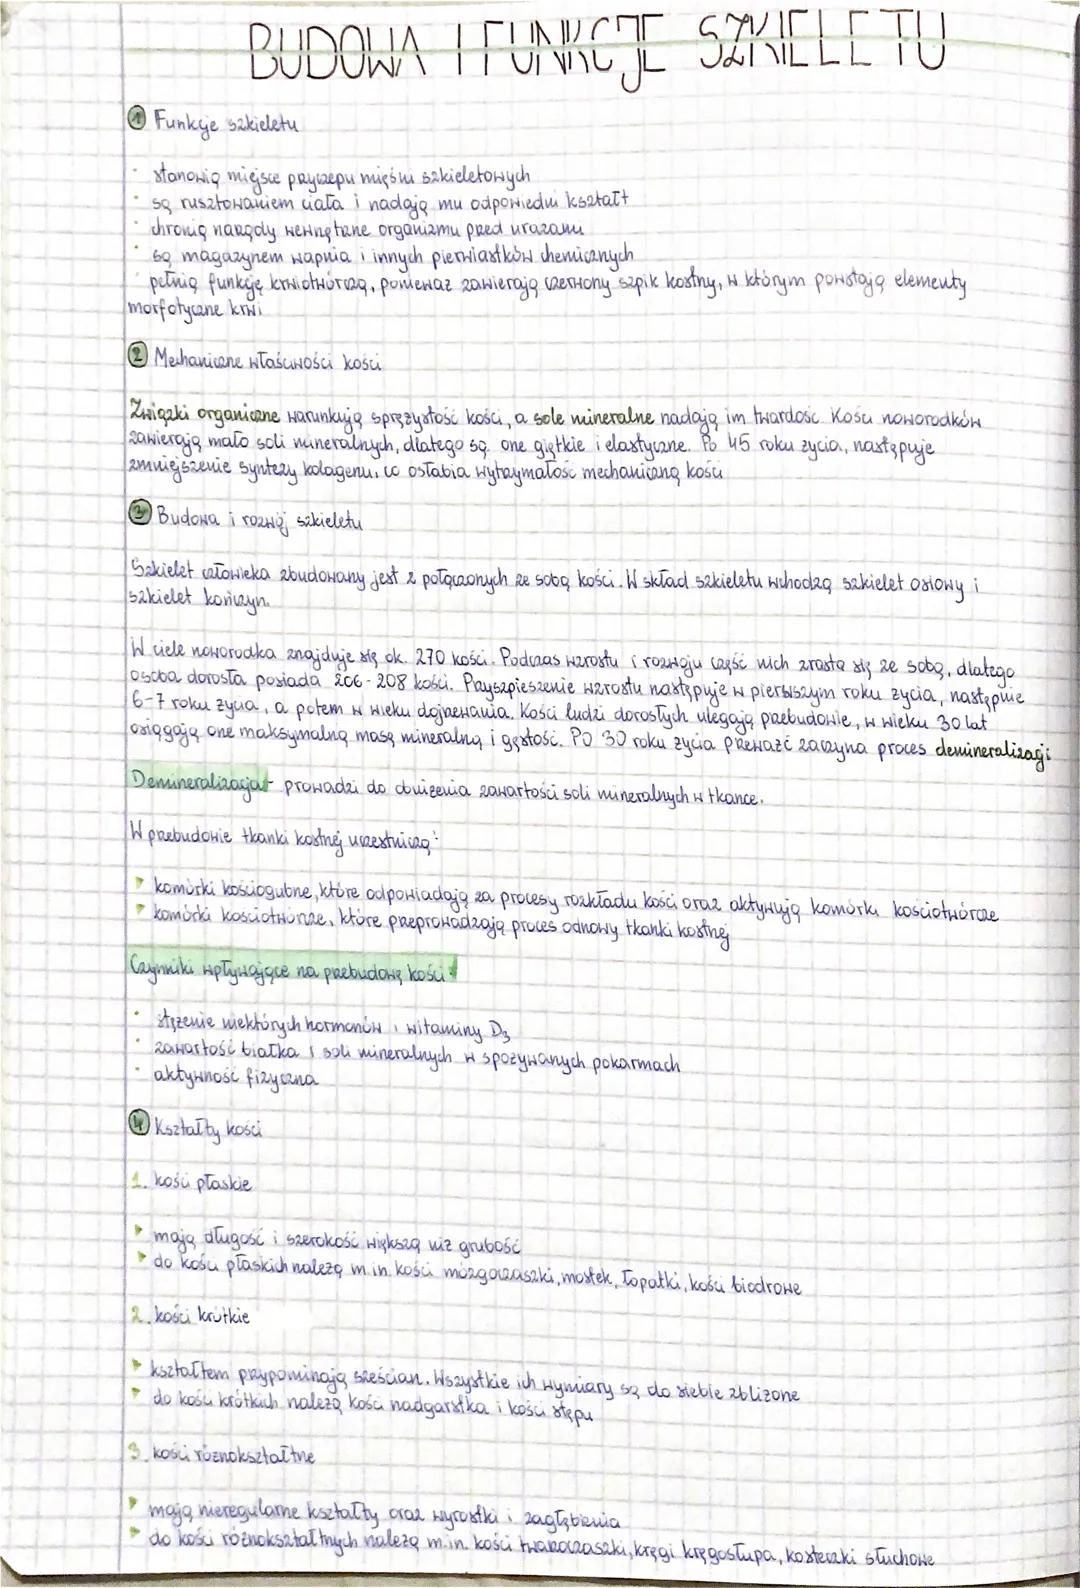 BUDOWA I FUNKCJE SZKIELETU
1 Funkcje szkieletu
· stanowią miejsce przyczepu mięśni szkieletowych
· są rusztowaniem ciała i nadają mu odpowiedni kształt
· chronią narządy wewnętrzne organizmu przed urazami
· są magazynem wapnia i innych pierwiastków chemicznych
· pełnią funkcję krwiotwórczą, ponieważ zawierają czerwony szpik kostny, w którym powstają elementy
morfotyczne krwi
2 Mechaniczne właściwości kości
Związki organiczne warunkują sprężystość kości, a sole mineralne nadają im twardość. Kości noworodków
zawierają mało soli mineralnych, dlatego są one giętkie i elastyczne. Po 45 roku życia, następuje
zmniejszenie syntezy kolagenu, co osłabia wytrzymałość mechaniczną kości
3 Budowa i rozwój szkieletu
Szkielet człowieka zbudowany jest z połączonych ze sobą kości. W skład szkieletu wchodzą szkielet osiowy i
szkielet kończyn.
W ciele noworodka znajduje się ok. 270 kości. Podczas wzrostu i rozwoju część nich zrasta się ze sobą, dlatego
osoba dorosła posiada 206-208 kości. Przyszpieszenie wzrostu następuje w pierwszym roku życia, następnie
6-7 roku życia, a potem w wieku dojrzewania. Kości ludzi dorosłych ulegają przebudowie, w wieku 30 lat
osiągają one maksymalną masę mineralną i gęstość. PO 30 roku życia przeważć zaczyna proces demineralizacji
Demineralizacja - prowadzi do obniżenia zawartości soli mineralnych w tkance.
W przebudowie tkanki kostnej uczestniczą:
▸ komórki kościogubne, które odpowiadają za procesy rozkładu kości oraz aktywują komórki kościotwórcze
▸ komórki kościotwórcze, które przeprowadzają proces odnowy tkanki kostnej
Czynniki wpływające na przebudowę kości:
· stężenie niektórych hormonów i witaminy D3
· zawartość białka i soli mineralnych w spożywanych pokarmach
· aktywność fizyczna
4 Kształty kości
1. kości płaskie
▸ mają długość i szerokość większą niż grubość
▸ do kości płaskich należą m.in. kości mózgoczaszki, mostek, łopatki, kości biodrowe
2. kości krótkie
▸ kształtem przypominają sześcian. Wszystkie ich wymiary są do siebie zbliżone
▸ do kości krótkich należą kości nadgarstka i kości stępu
3. kości różnokształtne
▸ mają nieregularne kształty oraz wyrostki i zagłębienia
▸ do kości różnokształtnych należą m.in. kości twarzoczaszki, kręgi kręgosłupa, kosteczki słuchowe